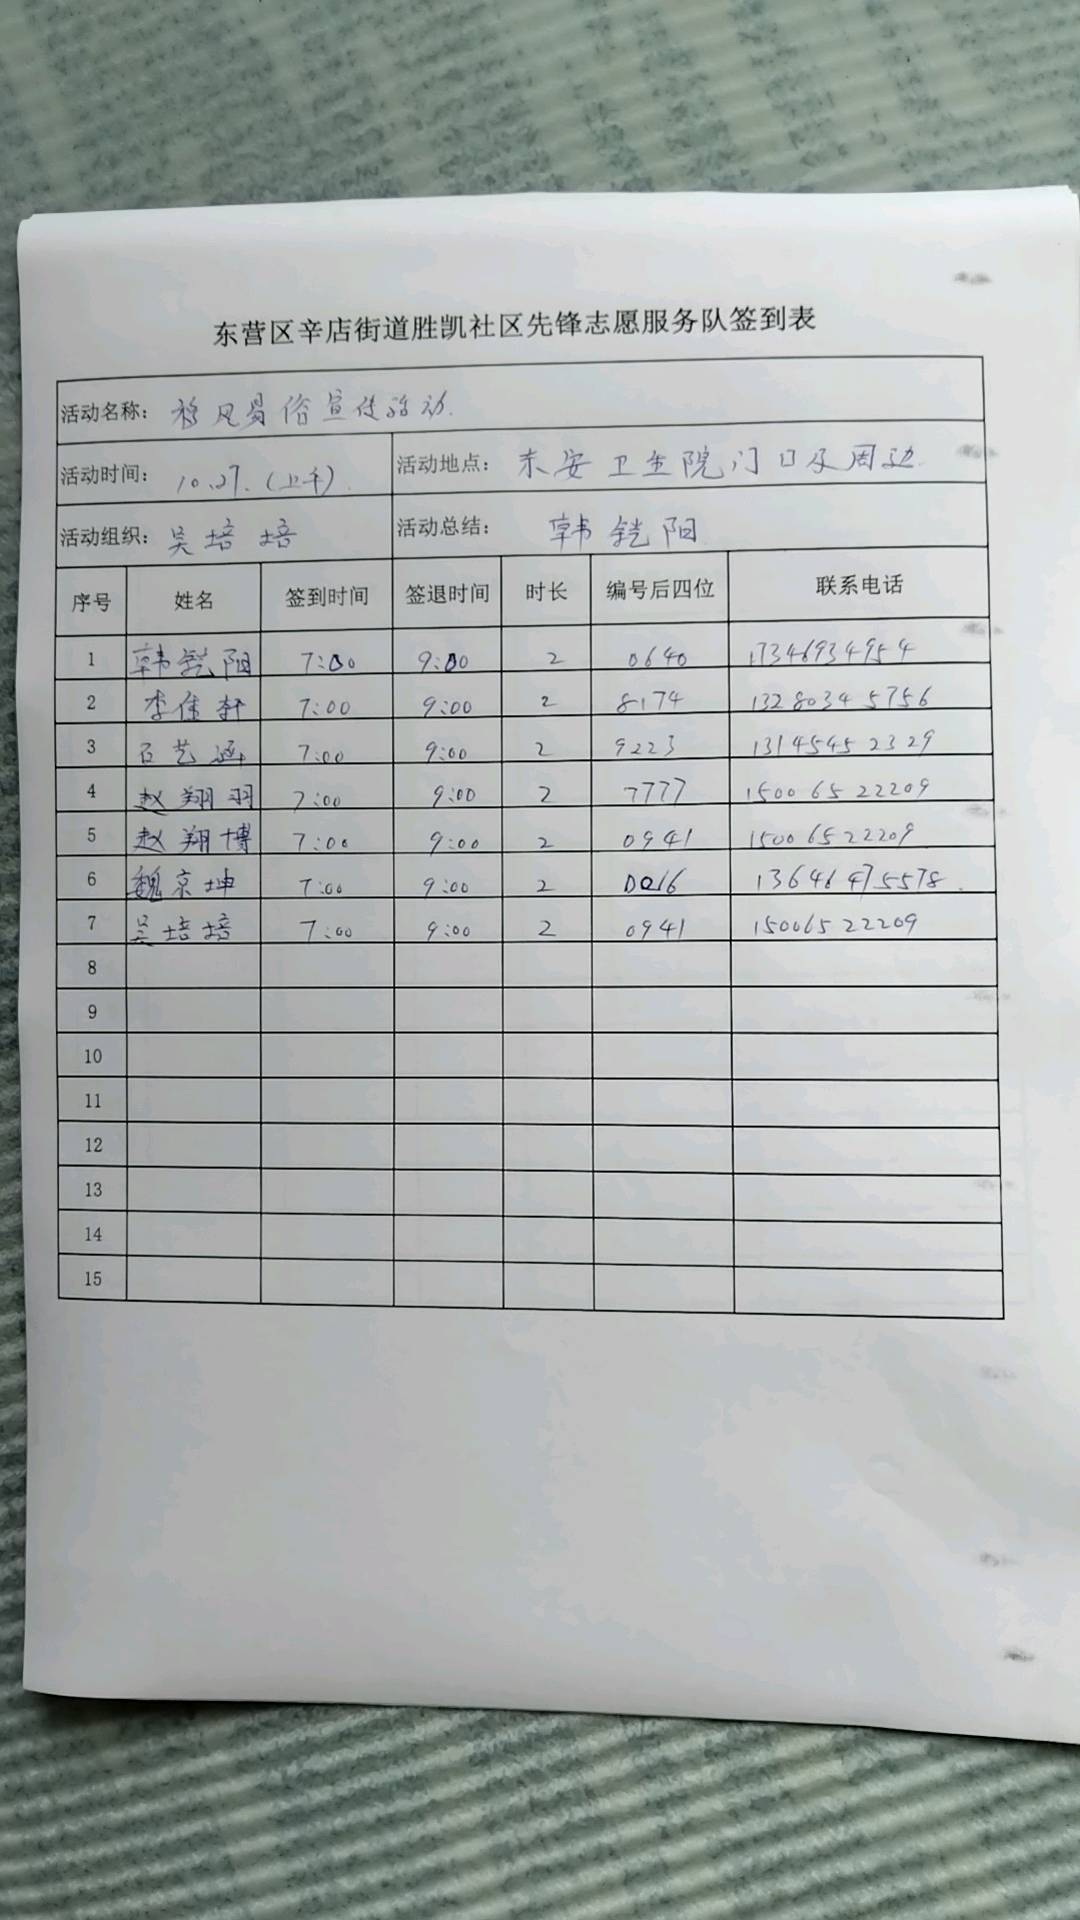 东营区辛店街道胜凯社区先锋志愿服务队签到表
活动名称: 移风易俗宣传活动.
活动时间: 10.27.(上午). 活动地点: 东安卫生院门口及周边.
活动组织: 吴培培 活动总结: 韩铠阳
序号 姓名 签到时间 签退时间 时长 编号后四位 联系电话
1 韩铠阳 7:00 9:00 2 0640 17346934954
2 李佳轩 7:00 9:00 2 8174 13280345756
3 石艺涵 7:00 9:00 2 9223 13145452329
4 赵翔羽 7:00 9:00 2 7777 15006522209
5 赵翔博 7:00 9:00 2 0941 15006522209
6 魏京坤 7:00 9:00 2 0016 13646475578.
7 吴培培 7:00 9:00 2 0941 15006522209
8
9
10
11
12
13
14
15